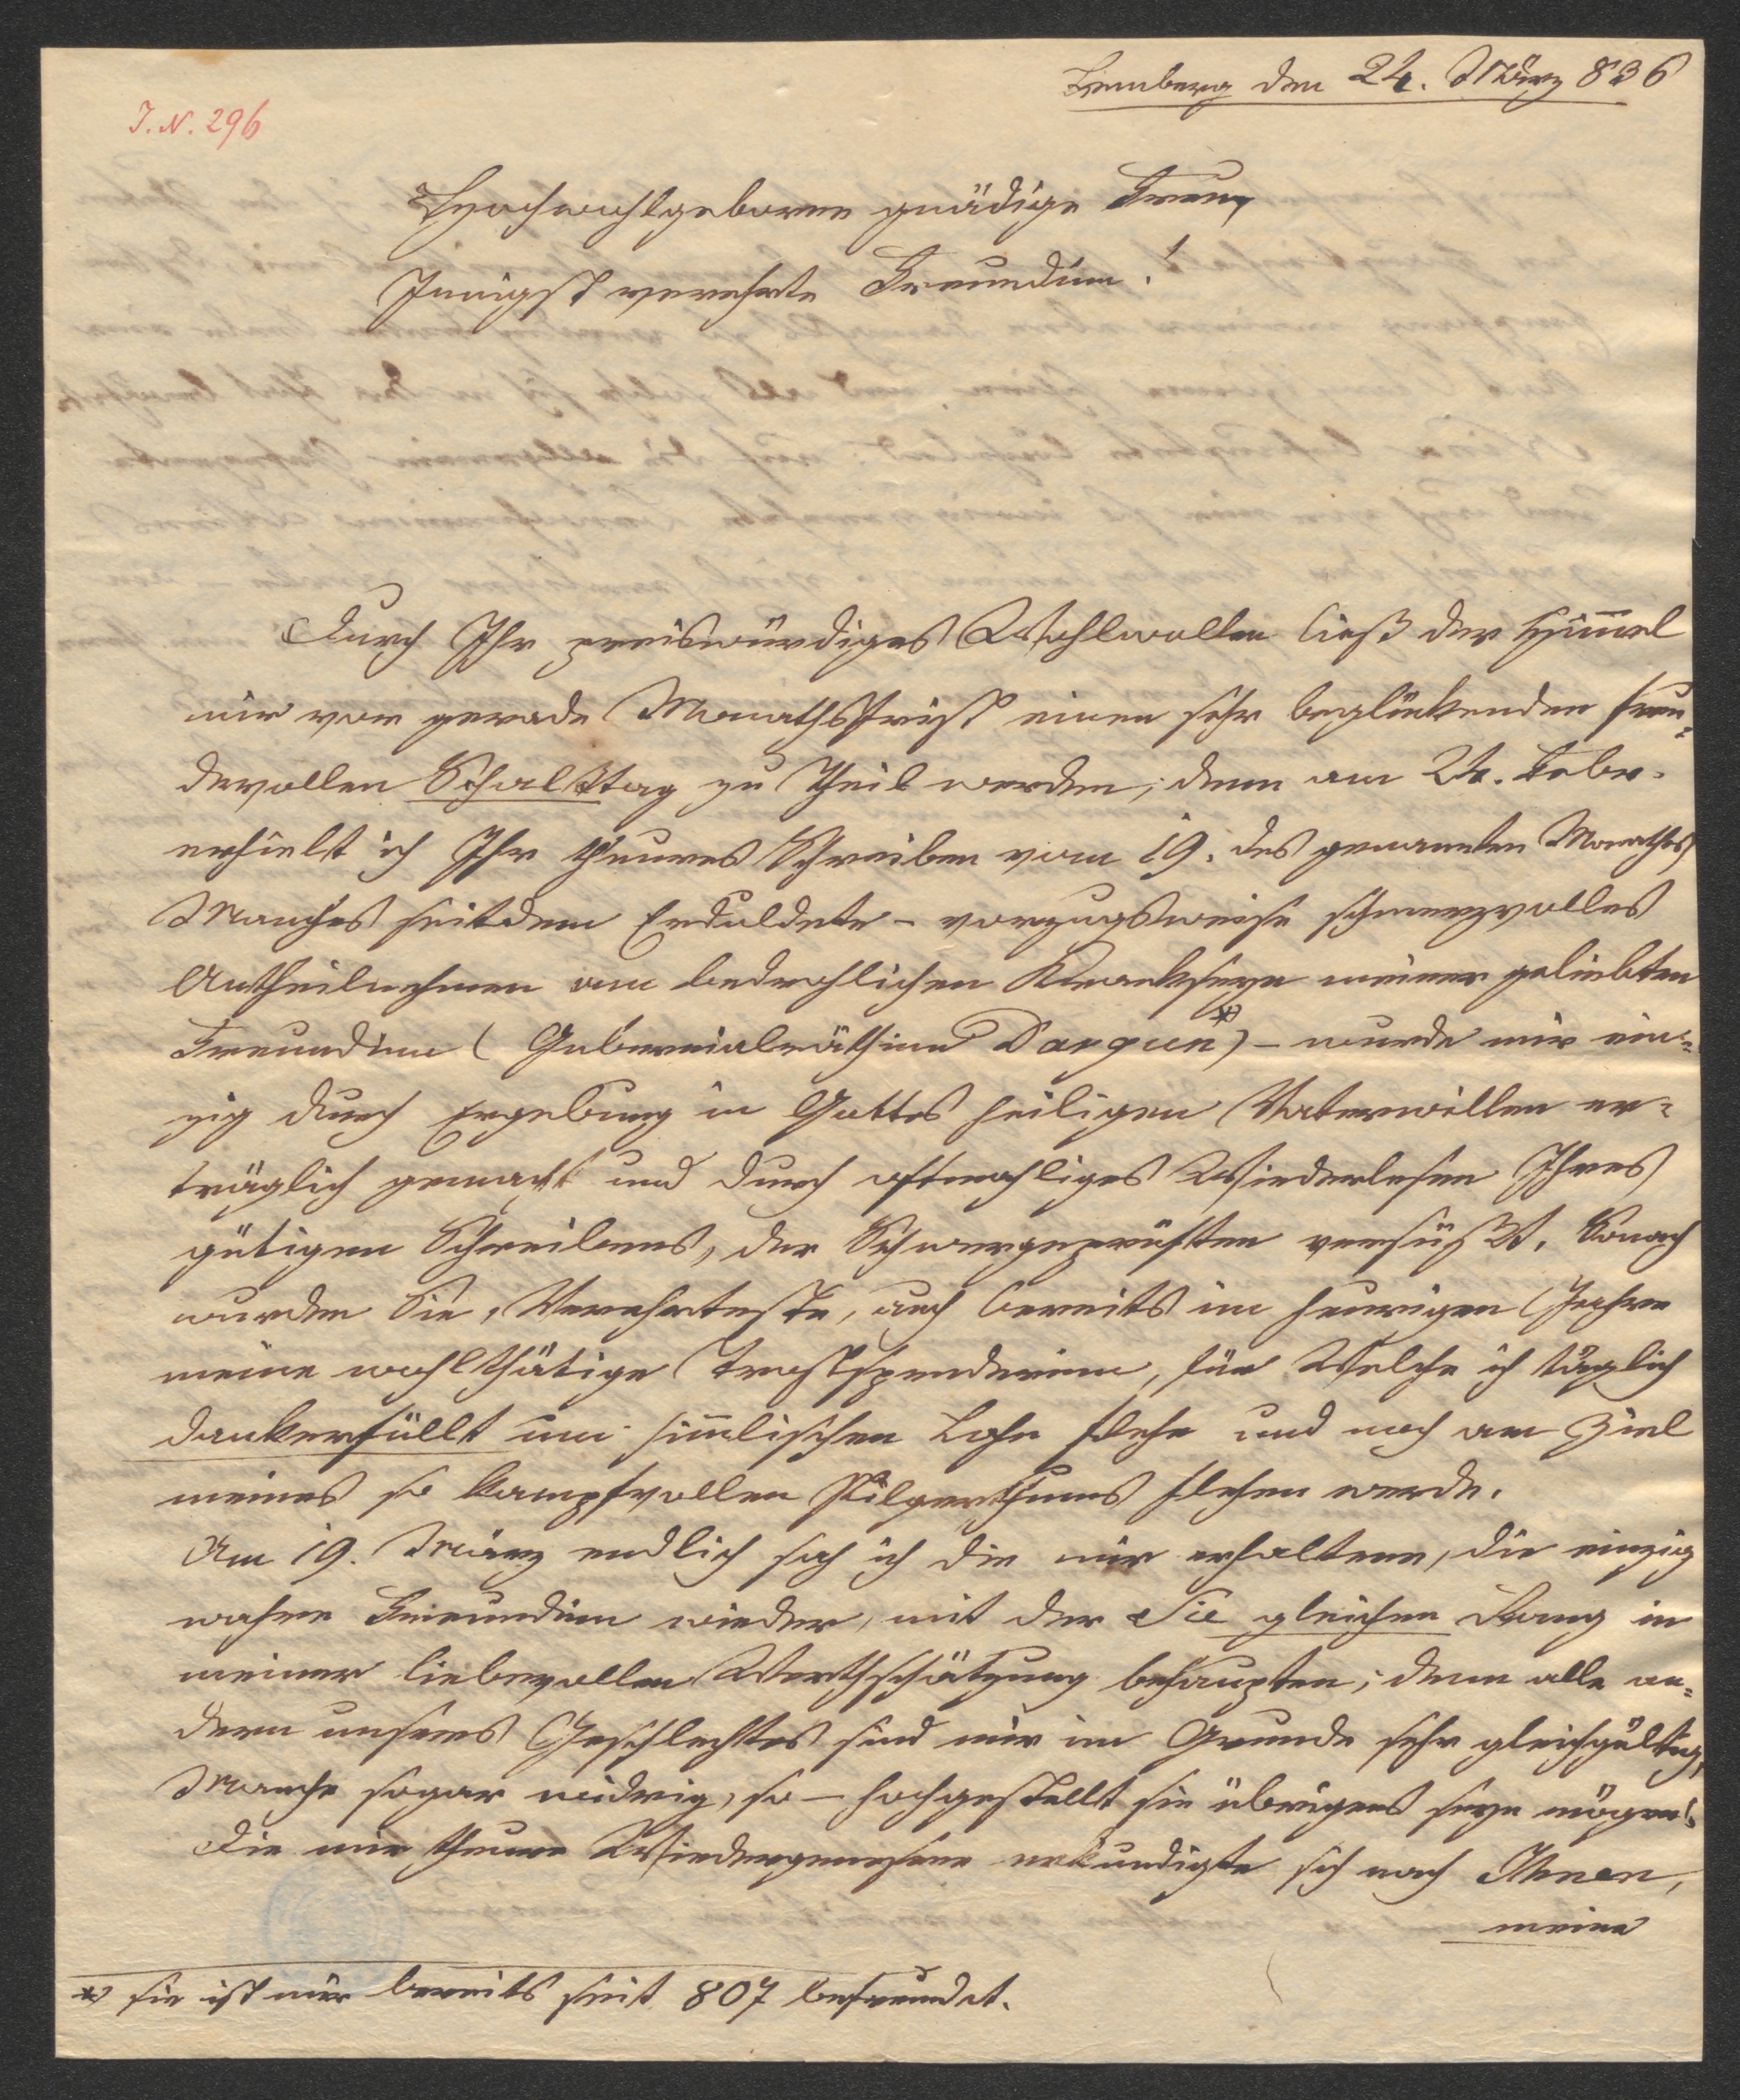 Lemberg den 24. März 836
I. N. 296
Hochwohlgeborne gnädige Frau,
Innigst verehrte Freundinn!
Durch Ihr preiswürdiges Wohlwollen ließ der Him̅el
mir vor gerade Monathsfrist einen sehr beglückenden freu-
devollen Schalttag zu Theil werden; denn am 24. Febr.
erhielt ich Ihr theures Schreiben vom 19. des genannten Monathes
Manches seitdem Erduldete – vorzugsweise schmerzvolles
Antheilnehmen am bedrohlichen Krankseyn meiner geliebten
Freundinn (Gubernialräthinn Dargun *) – wurde mir ein-
zig durch Ergebung in Gottes heiligen Vaterwillen er-
träglich gemacht und durch oftmahliges Wiederlesen Ihres
gütigen Schreibens, der Schwergeprüften versüßt. Sonach
wurden Sie, Verehrteste, auch bereits im heurigen Jahre
meine wohlthätige Trostspenderinn, für Welche ich täglich
dankerfüllt um him̅lischen Lohn flehe und noch am Ziel
meines so kampfvollen Pilgerthums flehen werde.
Am 19. März endlich sah ich die mir erhaltene, die einzig
wahre Freundinn wieder, mit der Sie gleichen Rang in
meiner liebevollen Werthschätzung behaupten; denn alle an-
dern unseres Geschlechtes sind mir im Grunde sehr gleichgültig,
Manche sogar widrig, so – hochgestellt sie übrigens seyn mögen.
Die mir theure Wiedergenesene erkundigte sich nach Ihnen,
meine
*) sie ist mir bereits seit 807 befreundet.